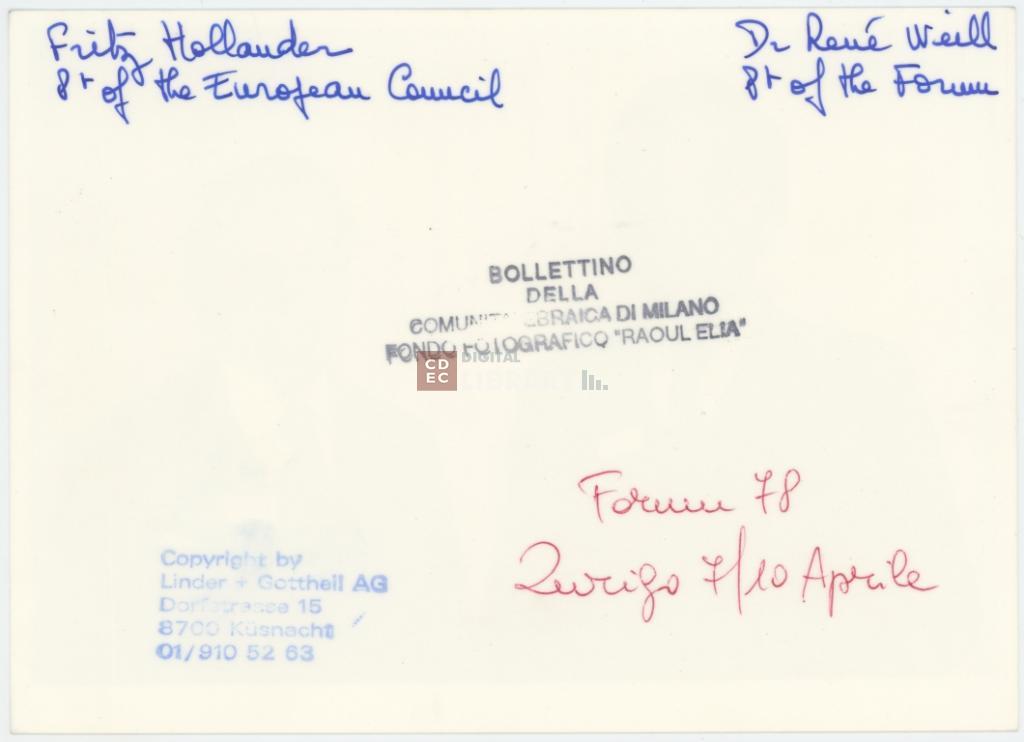 Fritz Hollander
Pt of the European Council
Dr René Weill
Pt of the Forum
BOLLETTINO
DELLA
COMUNITA EBRAICA DI MILANO
FONDO FOTOGRAFICO "RAOUL ELIA"
CD
EC
DIGITAL
LIBRARY
Forum 78
Zurigo 7/10 Aprile
Copyright by
Linder + Gottheil AG
Dorfstrasse 15
8700 Küsnacht
01/910 52 63